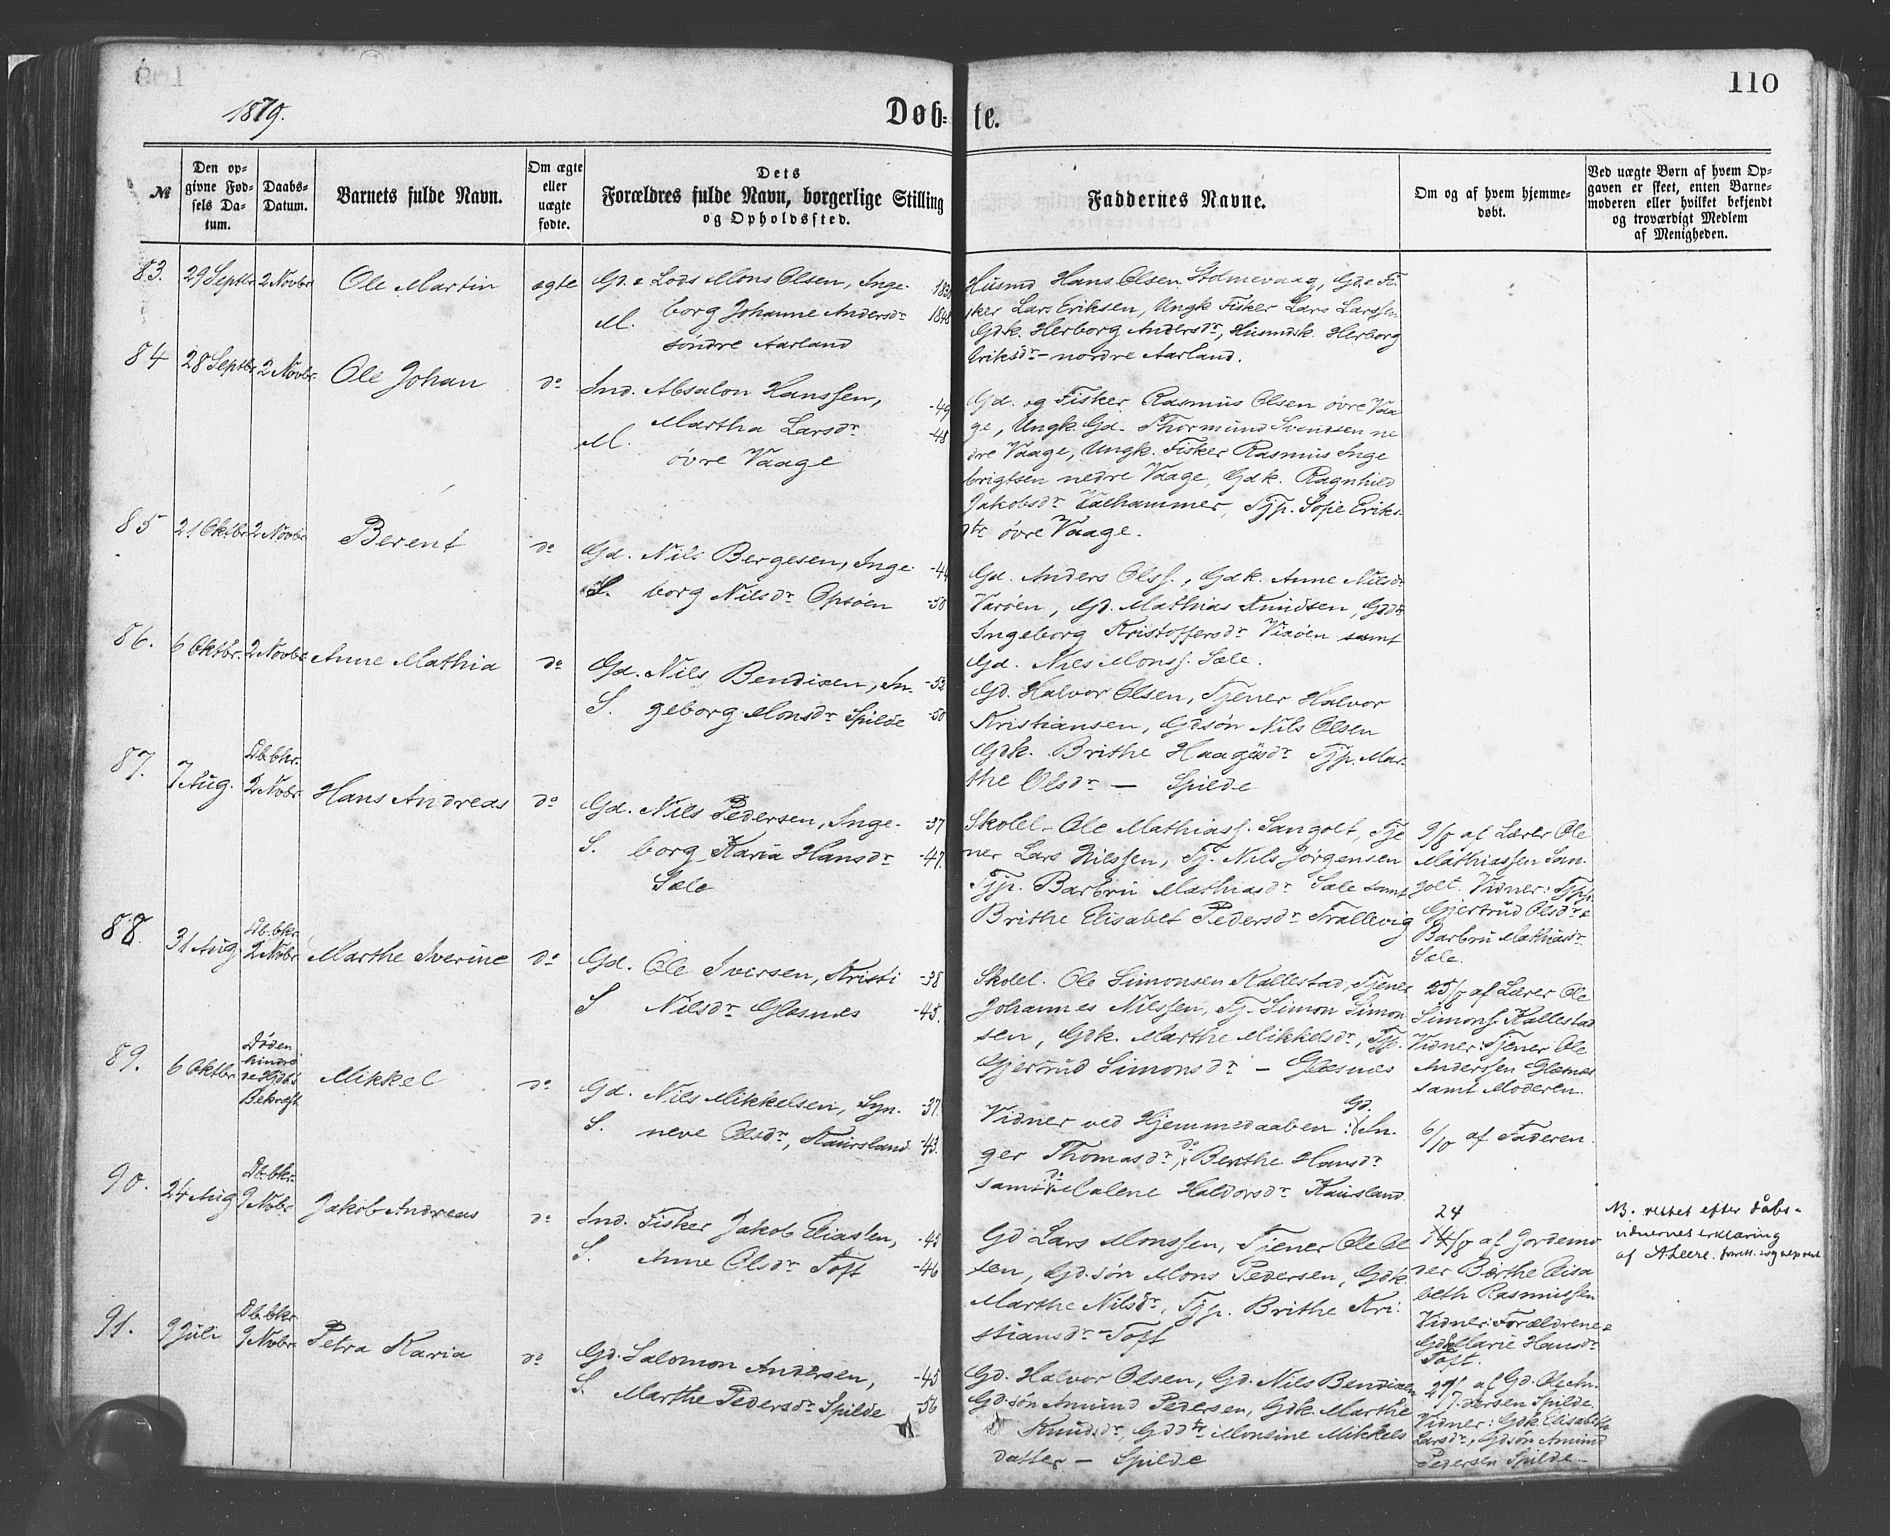 1879.
Døb-
te.
110
№
Den op-
givne Fød-
sels Da-
tum.
Daabs-
Datum.
Barnets fulde Navn.
Om ægte
eller
uægte
fødte.
Dets
Forældres fulde Navn, borgerlige Stilling
og Opholdssted.
Faddernes Navne.
Om og af hvem hjemme-
døbt.
Ved uægte Børn af hvem Op-
gaven er skeet, enten Barne-
moderen eller hvilket bekjendt
og troværdigt Medlem
af Menigheden.
83.
29 Septbr
2 Novbr
Ole Martin
ægte
Gd. & Lods Mons Olsen, Inge-
borg Johanne Andersdr
1848
M.
søndre Aarland
Husmd Hans Olsen Stolmevaag, Gd. & Fi
sker Lars Eriksen, Ungk Fisker Lars Larssen
Gdk. Herborg Andersdr, Husmdsk. Herborg
Eriksdr - nordre Aarland.
84
28 Septbr
2 Novbr.
Ole Johan
do
Ind. Absalon Hanssen,
-49
Martha Larsdr
-48
M.
øvre Vaage
Gd. og Fisker Rasmus Olsen øvre Vaa
ge, Ungk. Gd. Thormund Svendsen ne
dre Vaage, Ungk. Fisker Rasmus Inge
brigtsen nedre Vaage, Gdk. Ragnhild
Jakobsdr Valhammer, Tjp. Sofie Eriks-
dtr øvre Vaage.
85
21 Oktbr
2 Novbr
Berent
do
Gd. Nils Bergesen, Inge-
-44
S. borg Nilsdr Opsøen
-50
Gd. Anders Olss., Gdk. Anne Nilsdr
Varøen, Gd. Mathias Knudsen, Gddtr
Ingeborg Kristoffersdr Vinøen samt
Gd. Nils Monss. Sæle.
86.
6 Oktbr.
2 Novbr
Anne Mathia
do
Gd. Nils Bendixen, In-
-52
S. geborg Monsdr Spilde
-50
Gd. Halvor Olsen, Tjener Halvor
Kristiansen, Gdsøn Nils Olsen
Gdk. Brithe Haagesdr Tjp. Mar-
the Olsdr — Spilde
87.
7 Aug.
Db. bkr.
2 Nvbr.
Hans Andreas
do
Gd. Nils Pedersen, Inge-
-37
S. borg Karia Hansdr
-47.
Sæle
Skolel. Ole Mathiass. Sangolt, Tje
ner Lars Nilssen, Tj. Nils Jørgensen
Tjp. Barbru Mathiasdr Sæle samt
Brithe Elisabet Pedersdr Trællevig
9/8 af Lærer Ole
Mathiassen San-
golt. Vidner: Tjpp.
Gjertrud Olsdr &
Barbru Mathiasdr
Sæle.
88.
31 Aug
Db. bkr.
2 Nvbr
Marthe Iverine
do
Gd. Ole Iversen, Kristi
-38
S Nilsdr Glesnes
-45.
Skolel. Ole Simonsen Kallestad, Tjener
Johannes Nilssen, Tj. Simon Simon-
sen, Gdk. Marthe Mikkelsdr, Tjp.
Gjertrud Simonsdr — Glesnes
25/8 af Lærer Ole
Simons. Kallestad
Vidner: Tjener Ole
Anderssen Glesnes
samt Moderen.
89.
6 Oktbr
Døden
hindre
de Hjdbs
Bekræft
Mikkel
do
Gd. Nils Mikkelsen, Syn-
-37.
S. neve Olsdr, Kaursland
-43.
Vidner ved Hjemmedaaben: Gd. In-
ger Thomasdr, do Berthe Hansdr
samt do Malene Haldorsdr Kaursland
6/10 af Faderen.
90.
24 Aug
Db. bkr.
9 Nvbr
Jakob Andreas
do
Ind. Fisker Jakob Eliassen,
-45
S. Anne Olsdr Toft
-46
Gd Lars Monssen, Tjener Ole Ol
sen, Gd.søn Mons Pedersen, Gdk.
Marthe Nilsdr, Tjp. Brithe Kri-
stiansdr - Toft
24
/8 af Jordemo
der Berthe Elisa
beth Rasmussen
Vidner: Forældrene &
Gd Marie Hansdr
Toft.
NB. rettet efter dåbs-
vidnernes erklæring
91.
9 Juli
Db. bkr
9 Nvbr.
Petra Karia
do
Gd. Salomon Andersen,
-45
S. Marthe Pedersdr Spilde
-56
Gd. Halvor Olsen, Gd. Nils Bendixen
Gd.søn Amund Pedersen, Gdk. Marthe
Knudsdr, Gddtr Monsine Mikkels
datter - Spilde
27/7 af Gd. Ole An-
dersen Spilde.
Vidner: Gdk. Elisabeth
Larsdr, Gdsøn Amund
Pedersen Spilde.